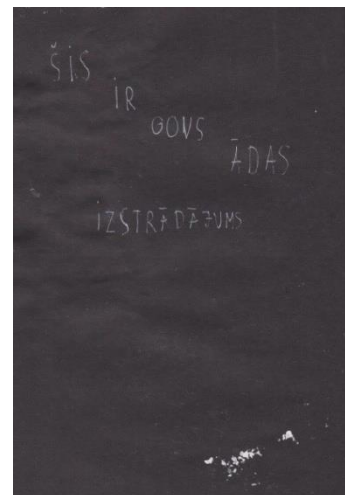 ŠiS
iR
GOVS
ĀDAS
iZSTRĀDĀJUMS